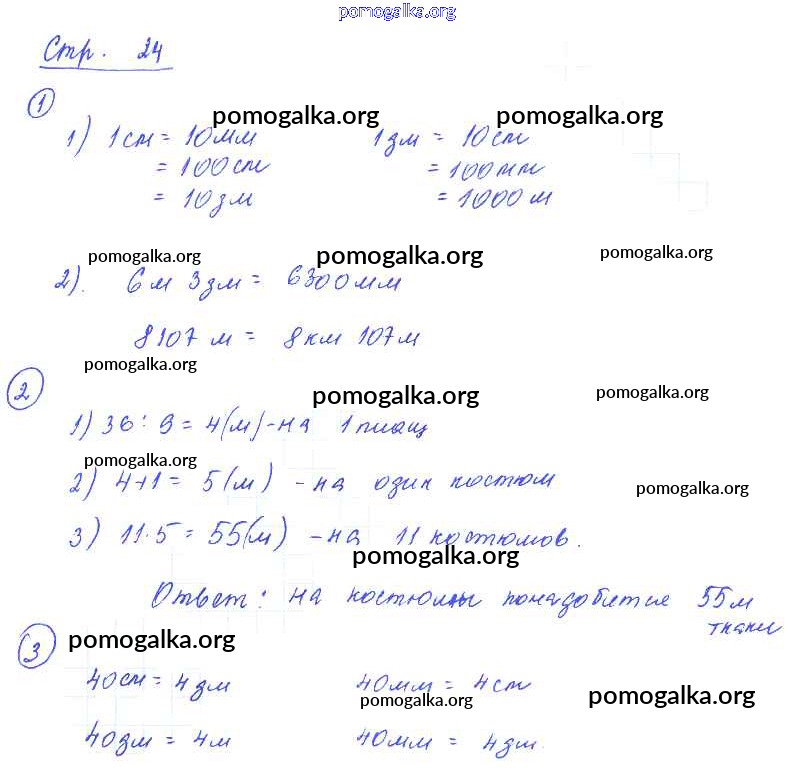 pomogalka.org
Стр. 24
pomogalka.org pomogalka.org
1
1) 1см = 10мм 1дм = 10см
= 100см = 100мм
= 10дм = 1000м
pomogalka.org pomogalka.org pomogalka.org
2). 6м 3дм = 6300мм
8107 м = 8км 107м
pomogalka.org
2
pomogalka.org pomogalka.org
1) 36 : 9 = 4(м) - на 1 плащ
pomogalka.org
2) 4+1 = 5(м) - на один костюм
pomogalka.org
3) 11·5 = 55(м) - на 11 костюмов.
pomogalka.org
Ответ: на костюмы понадобится 55м
ткани
3
pomogalka.org
40см = 4дм 40мм = 4см
pomogalka.org pomogalka.org
40дм = 4м 40мм = 4дм.